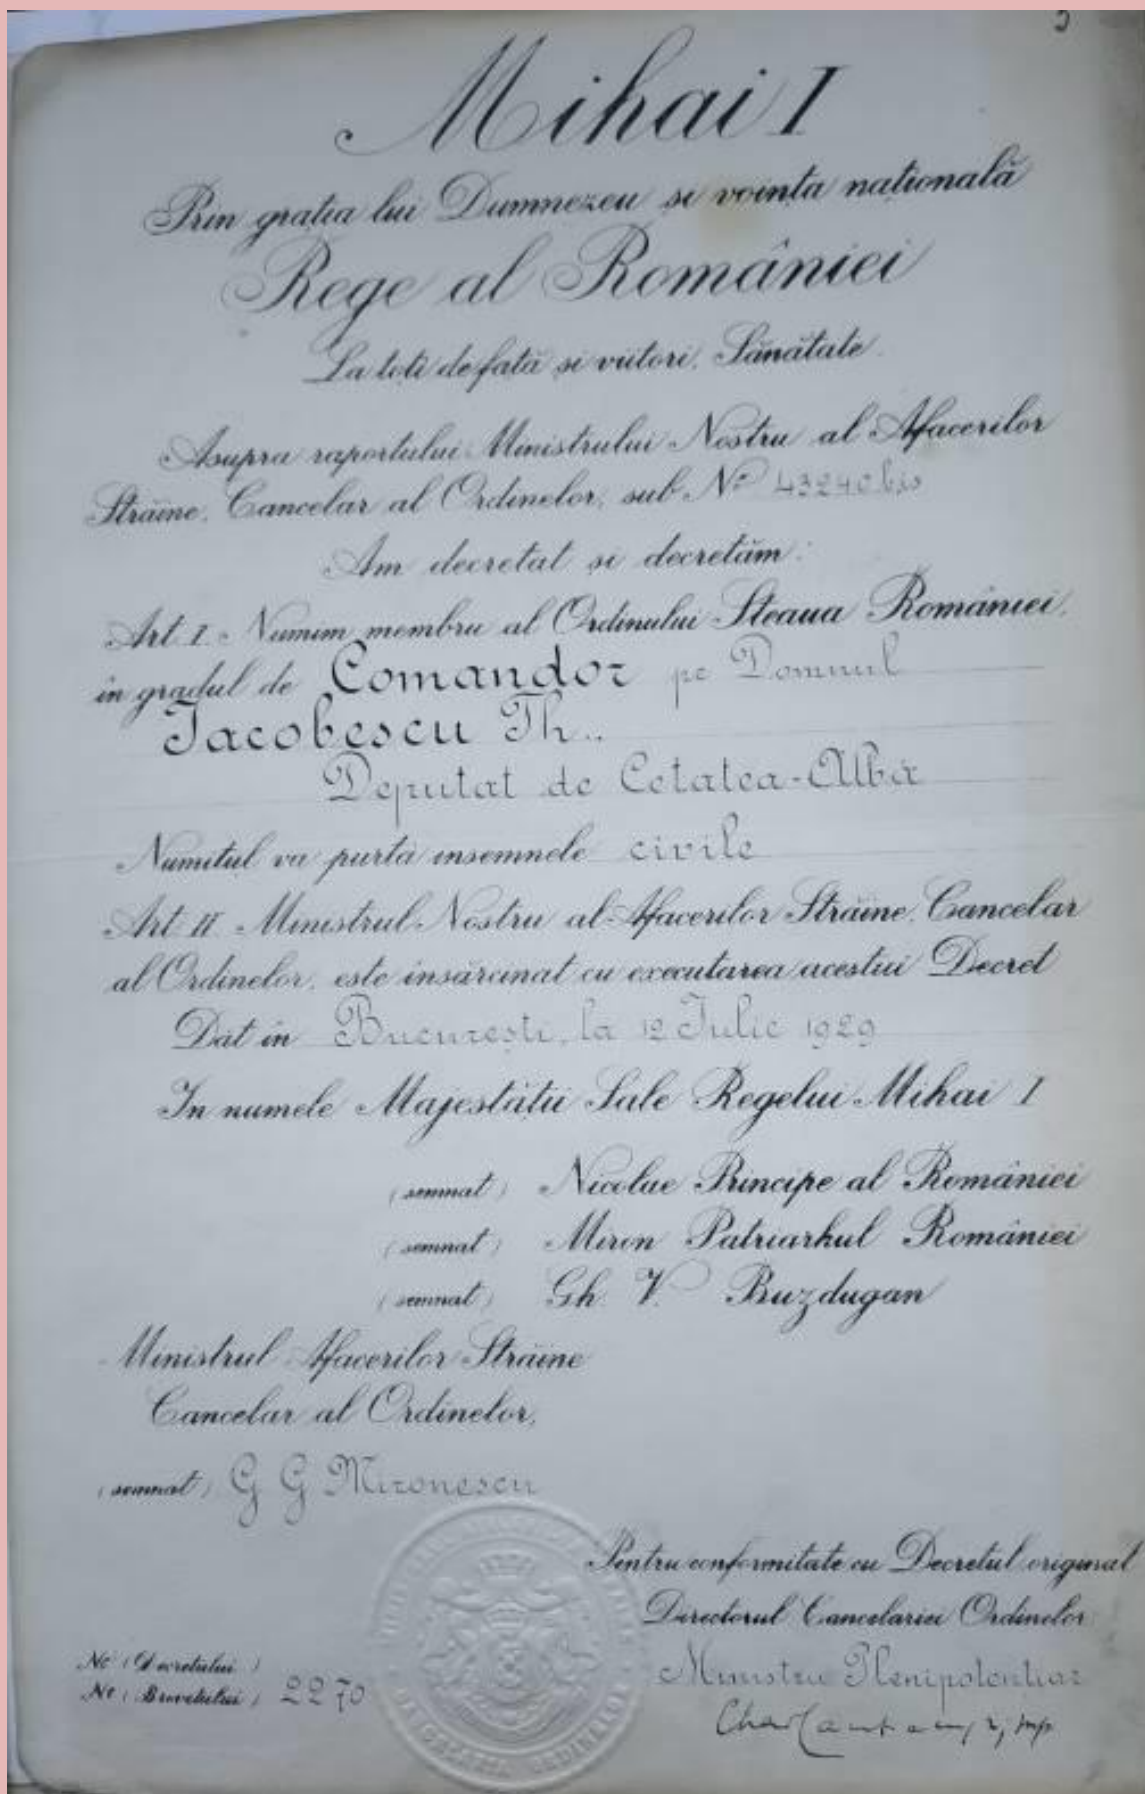 5
Mihai I
Prin grația lui Dumnezeu și voința națională
Rege al României
La toți de față și viitori, Sănătate.
Asupra raportului Ministrului Nostru al Afacerilor
Străine, Cancelar al Ordinelor, sub No 43240 bis
Am decretat și decretăm:
Art. I. Numim membru al Ordinului Steaua României,
în gradul de Comandor pe Domnul
Iacobescu Th..
Deputat de Cetatea-Albă
Numitul va purta insemnele civile
Art. II. Ministrul Nostru al Afacerilor Străine, Cancelar
al Ordinelor, este însărcinat cu executarea acestui Decret
Dat în București, la 12 Iulie 1929
In numele Majestății Sale Regelui Mihai I
(semnat) Nicolae Principe al României
(semnat) Miron Patriarhul României
(semnat) Gh. V. Buzdugan
Ministrul Afacerilor Străine
Cancelar al Ordinelor,
(semnat) G G Mironescu
Pentru conformitate cu Decretul original
Directorul Cancelariei Ordinelor
Ministru Plenipotențiar
No (Decretului)
No (Brevetului) 2270